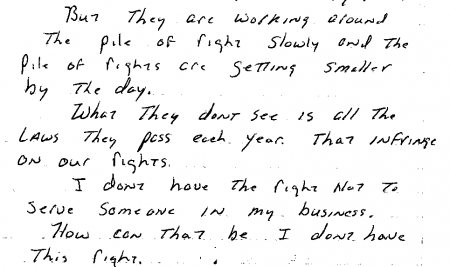 But They are working around
The pile of right slowly and The
Pile of rights are getting smaller
by The day.
What They dont see is all The
LAWS They pass each year. That INFringe
ON our rights.
I dont have The right Not To
Serve Someone IN my business.
How can That be I dont have
This right.